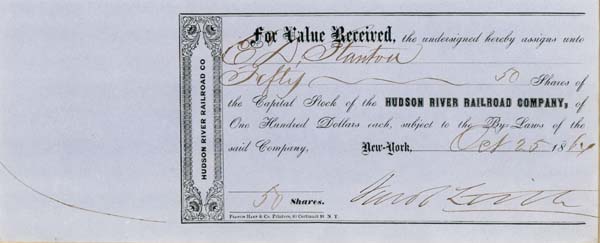 HUDSON RIVER RAILROAD CO
For Value Received, the undersigned hereby assigns unto
E. D. Stanton
Fifty 50 Shares of
the Capital Stock of the HUDSON RIVER RAILROAD COMPANY, of
One Hundred Dollars each, subject to the By-Laws of the
said Company. New-York, Oct 25 186
50 Shares.
Francis Hart & Co. Printers, 63 Cortlandt St. N. Y.